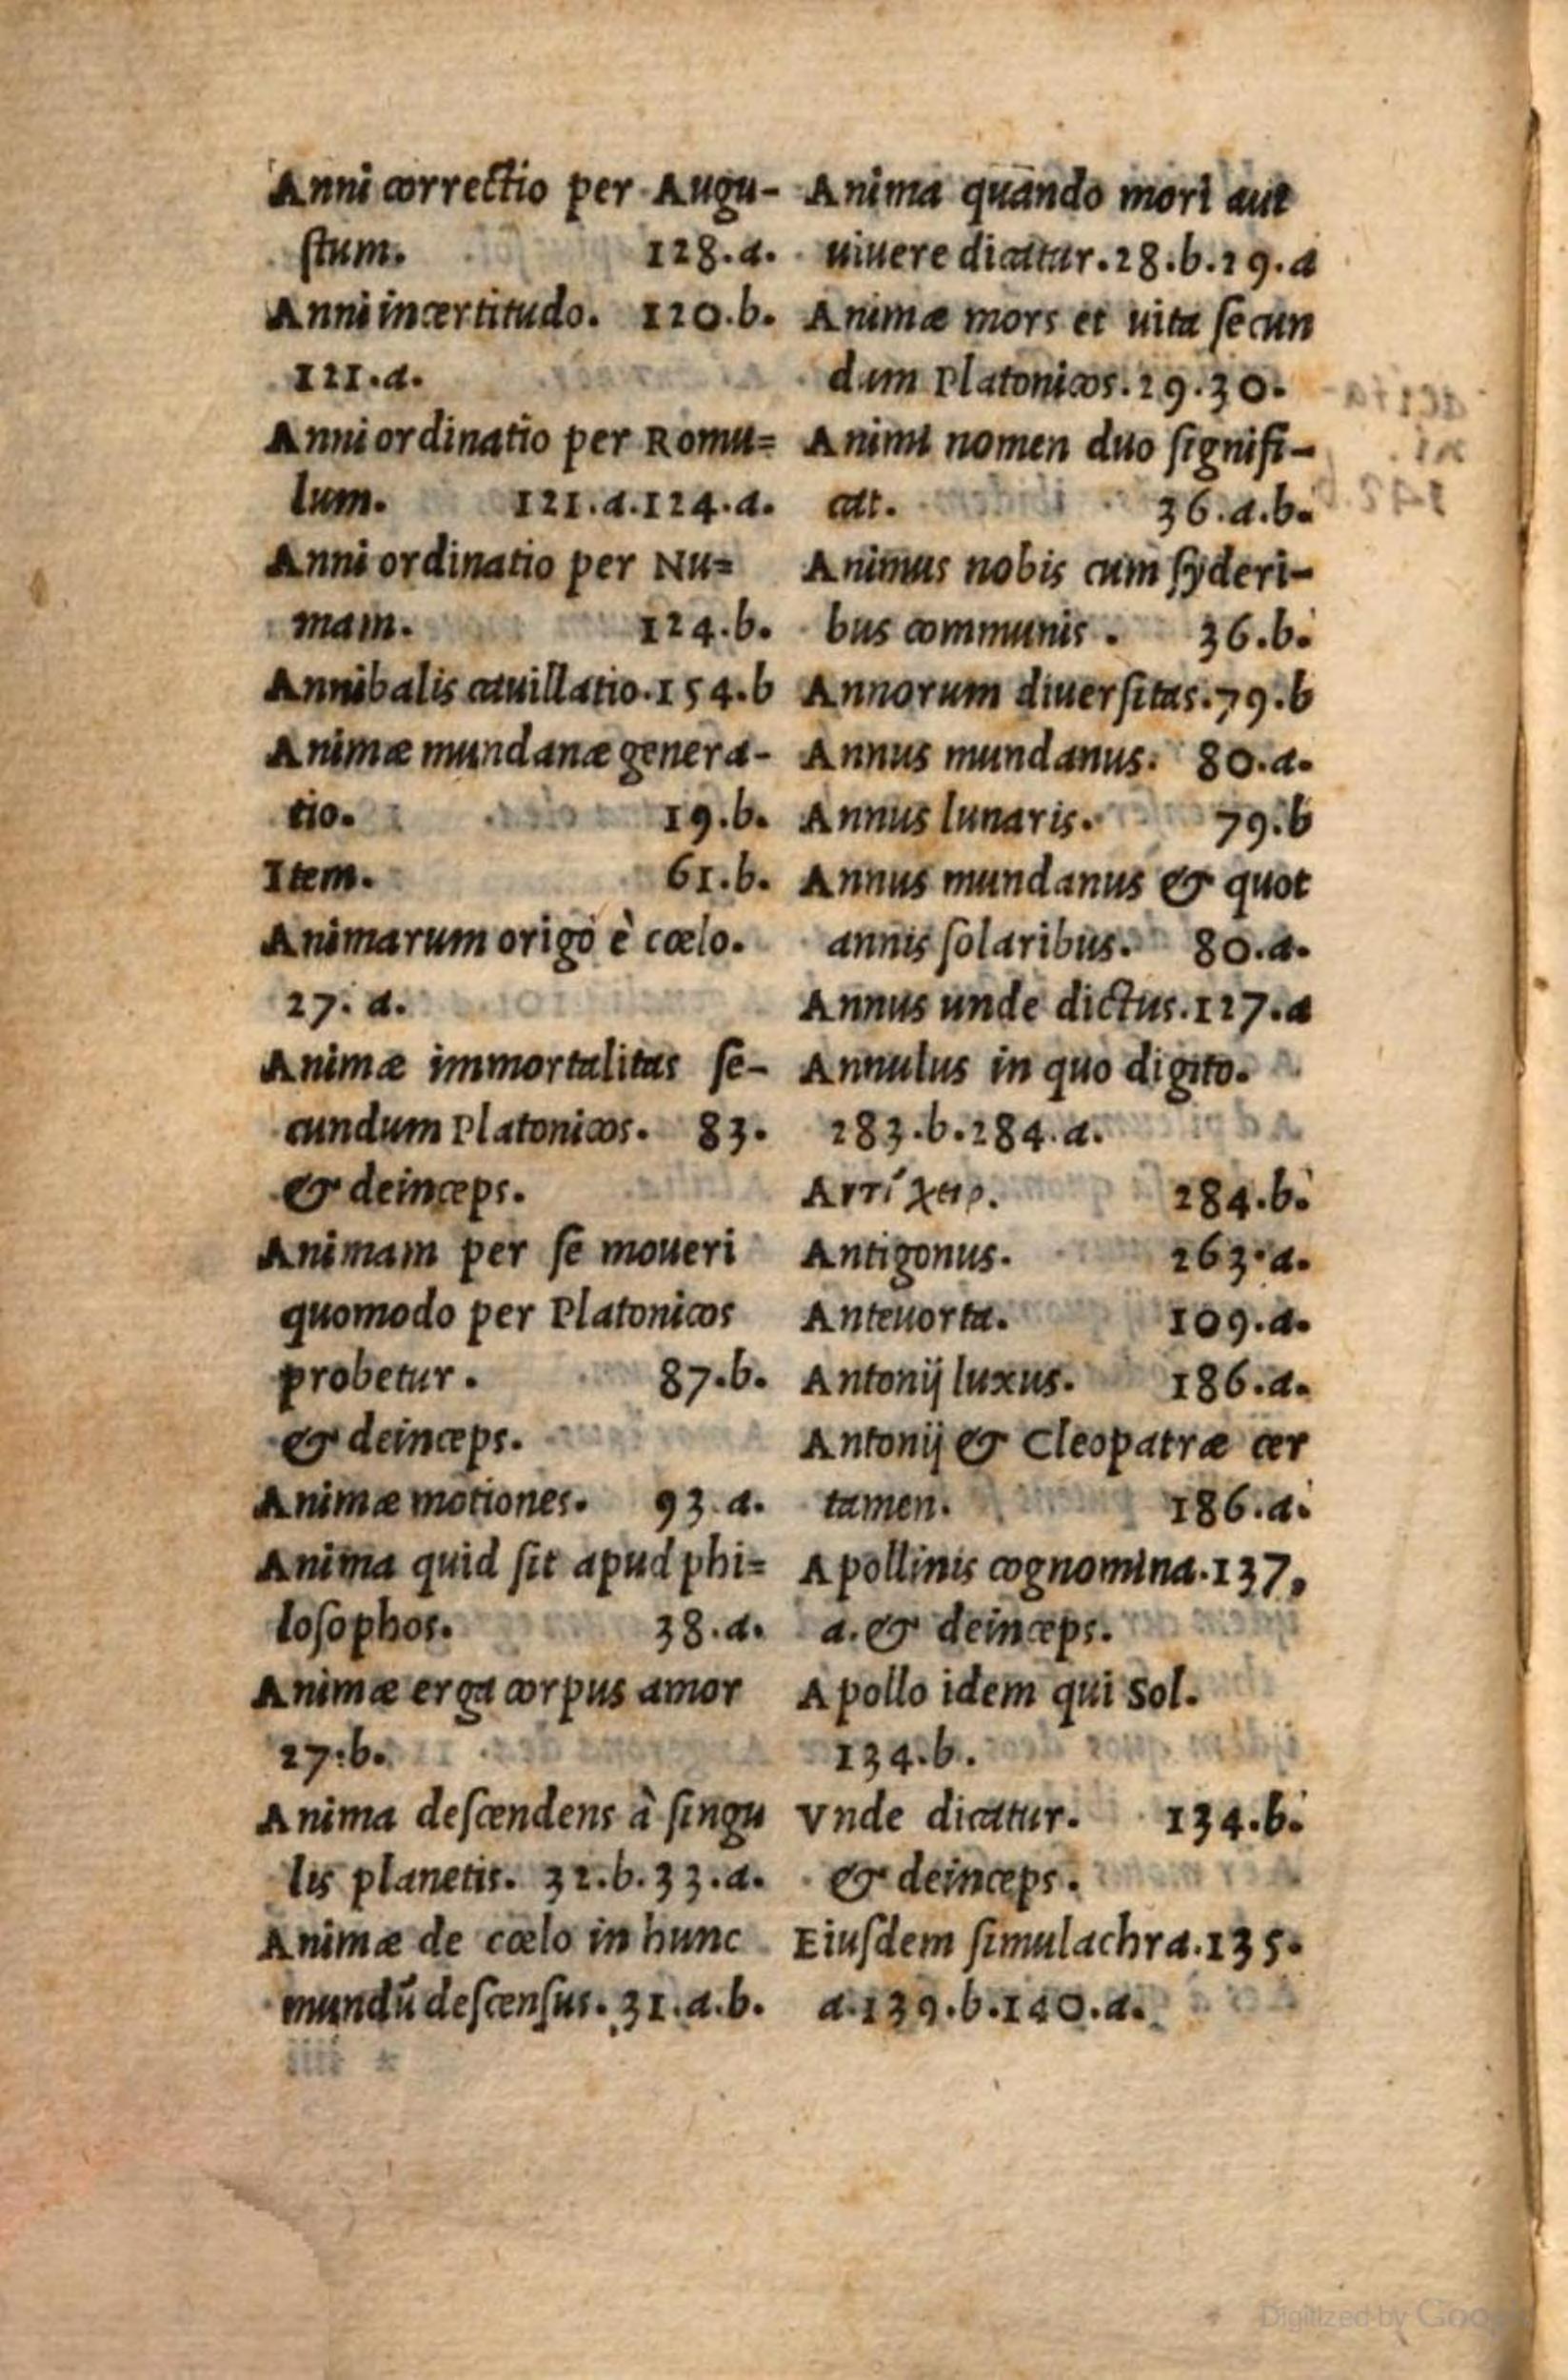 Anni correctio per Augu-
ſtum. 128.a.
Anni incertitudo. 120.b.
121.a.
Anni ordinatio per Romu=
lum. 121.a.124.a.
Anni ordinatio per Nu=
mam. 124.b.
Annibalis cauillatio.154.b
Animæ mundanæ genera-
tio. 19.b.
Item. 61.b.
Animarum origo è cœlo.
27. a.
Animæ immortalitas ſe-
cundum Platonicos. 83.
& deinceps.
Animam per ſe moueri
quomodo per Platonicos
probetur. 87.b.
& deinceps.
Animæ motiones. 93.a.
Anima quid ſit apud phi=
loſophos. 38.a.
Animæ erga corpus amor
27.b.
Anima deſcendens à ſingu
lis planetis. 32.b.33.a.
Animæ de cœlo in hunc
mundū deſcenſus. 31.a.b.
Anima quando mori aut
uiuere dicatur.28.b.29.a
Animæ mors et uita ſecun
dum Platonicos.29.30.
Animi nomen duo ſignifi-
cat. 36.a.b.
Animus nobis cum ſyderi-
bus communis. 36.b.
Annorum diuerſitas.79.b
Annus mundanus. 80.a.
Annus lunaris. 79.b
Annus mundanus & quot
annis ſolaribus. 80.a.
Annus unde dictus.127.a
Annulus in quo digito.
283.b.284.a.
Αντίχειρ. 284.b.
Antigonus. 263.a.
Anteuorta. 109.a.
Antonij luxus. 186.a.
Antonij & Cleopatræ cer
tamen. 186.a.
Apollinis cognomina.137,
a.& deinceps.
Apollo idem qui Sol.
134.b.
Vnde dicatur. 134.b.
& deinceps.
Eiuſdem ſimulachra.135.
a.139.b.140.a.
Digitized by Google